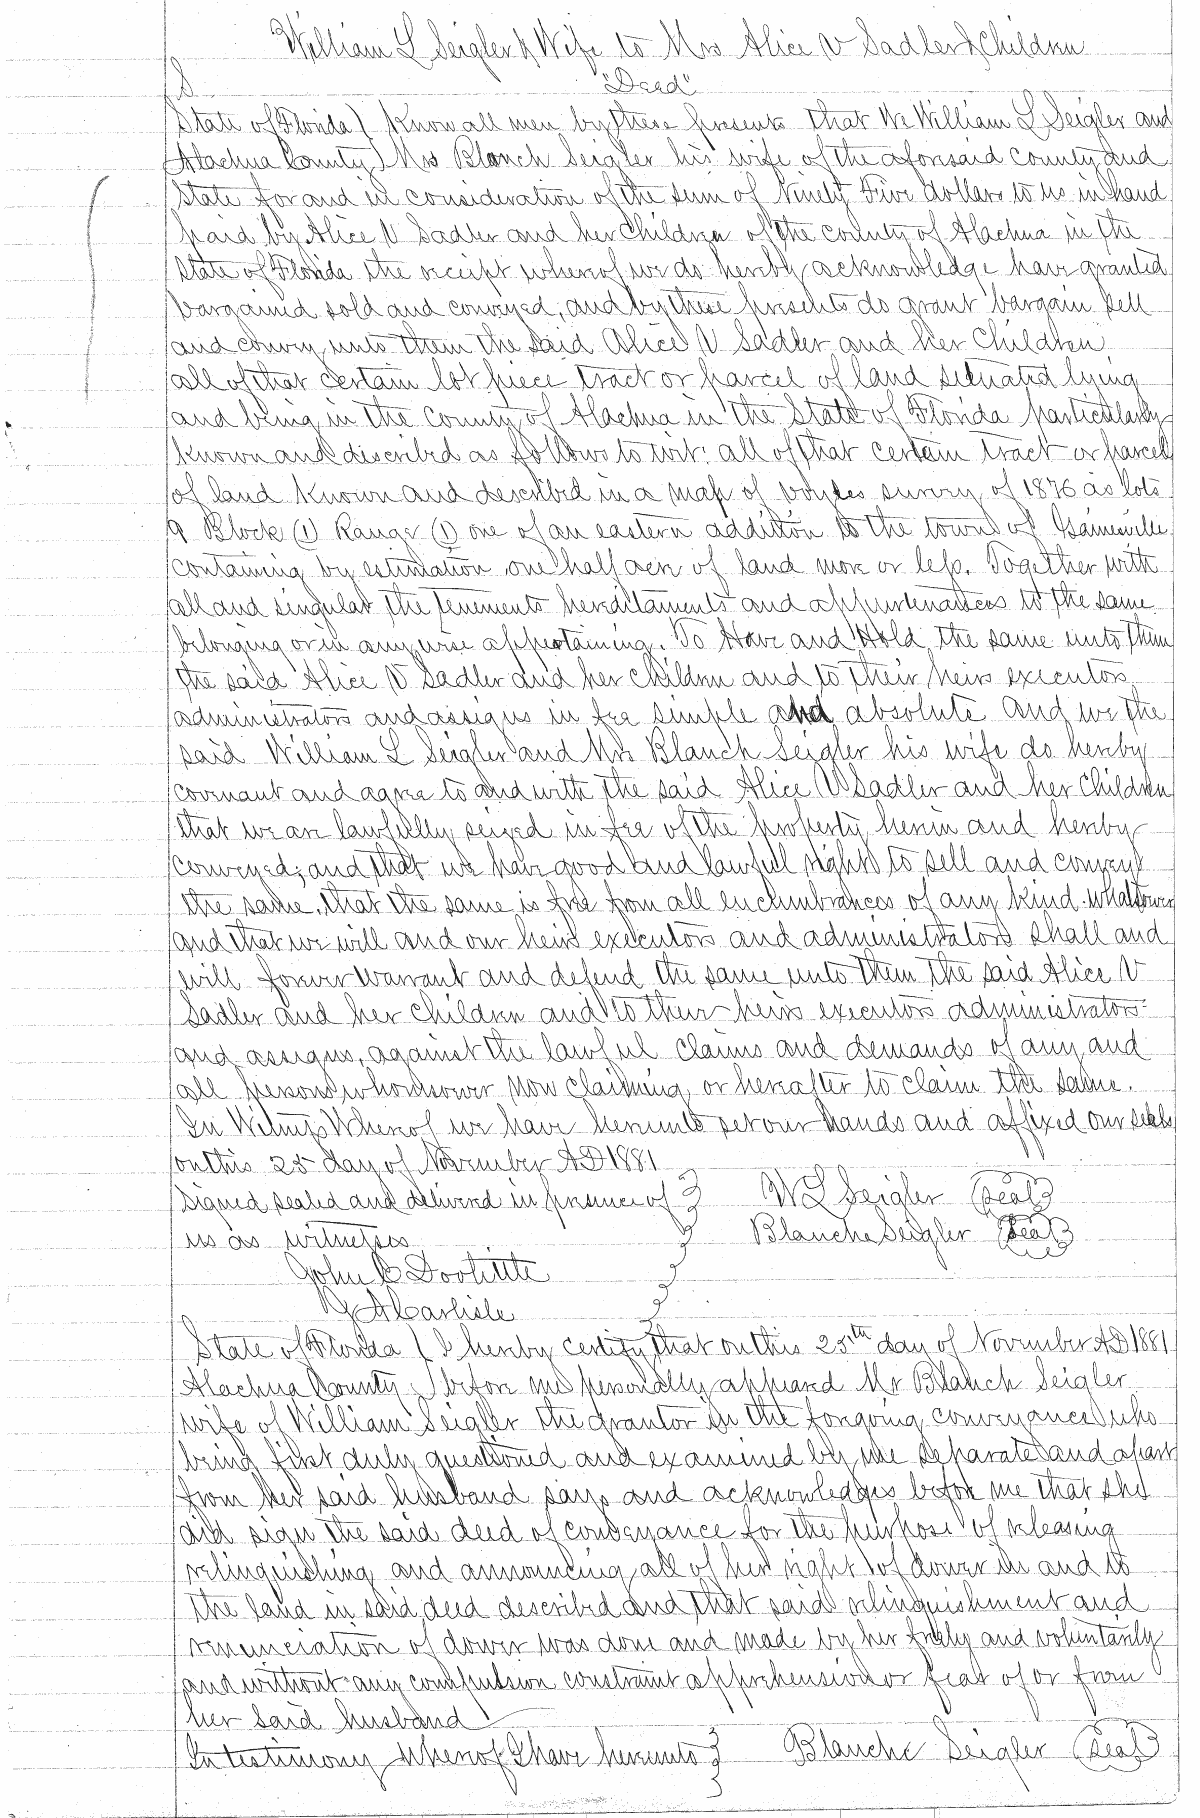 William L Seigler & Wife to Mrs Alice V Sadler & Children
"Deed"
S
State of Florida } Know all men by these presents that We William L Seigler and
Alachua County } Mrs Blanch Seigler his wife of the aforesaid county and
State for and in consideration of the sum of Ninety Five dollars to us in hand
paid by Alice V Sadler and her Children of the county of Alachua in the
State of Florida the receipt whereof we do hereby acknowledge have granted
bargained sold and conveyed, and by these presents do grant bargain sell
and convey unto them the said Alice V Sadler and her Children
all of that certain lot piece tract or parcel of land situated lying
and being in the County of Alachua in the State of Florida particularly
known and described as follows to wit: all of that certain tract or parcel
of land known and described in a map of survey of 1876 as lots
9 Block (1) Range (1) one of an eastern addition to the town of Gainesville
containing by estimation one half acre of land more or less. Together with
all and singular the tenements hereditaments and appurtenances to the same
belonging or in any wise appertaining. To Have and Hold the same unto them
the said Alice V Sadler and her children and to their heirs executors
administrators and assigns in fee simple and absolute And we the
said William L Seigler and Mrs Blanch Seigler his wife do hereby
covenant and agree to and with the said Alice V Sadler and her Children
that we are lawfully seized in fee of the property herein and hereby
conveyed; and that we have good and lawful right to sell and convey
the same, that the same is free from all encumbrances of any kind whatsoever
and that we will and our heirs executors and administrators shall and
will forever warrant and defend the same unto them the said Alice V
Sadler and her children and to their heirs executors administrators
and assigns, against the lawful claims and demands of any and
all persons whomsoever now claiming or hereafter to claim the same.
In Witness Whereof we have hereunto set our hands and affixed our seals
on this 25 day of November AD 1881
Signed sealed and delivered in presence of } W L Seigler (Seal)
us as witnesses } Blanche Seigler (Seal)
John C Doolittle
A Carlisle
State of Florida } I hereby certify that on this 25th day of November AD 1881
Alachua County } before me personally appeared Mr Blanch Seigler
wife of William Seigler the grantor in the forgoing conveyance who
being first duly questioned and examined by me separate and apart
from her said husband says and acknowledges before me that she
did sign the said deed of conveyance for the purpose of releasing
relinquishing and announcing all of her right of dower in and to
the land in said deed described and that said relinquishment and
renunciation of dower was done and made by her freely and voluntarily
and without any compulsion constraint apprehension or fear of or from
her said husband
In testimony whereof I have hereunto } Blanche Seigler (Seal)